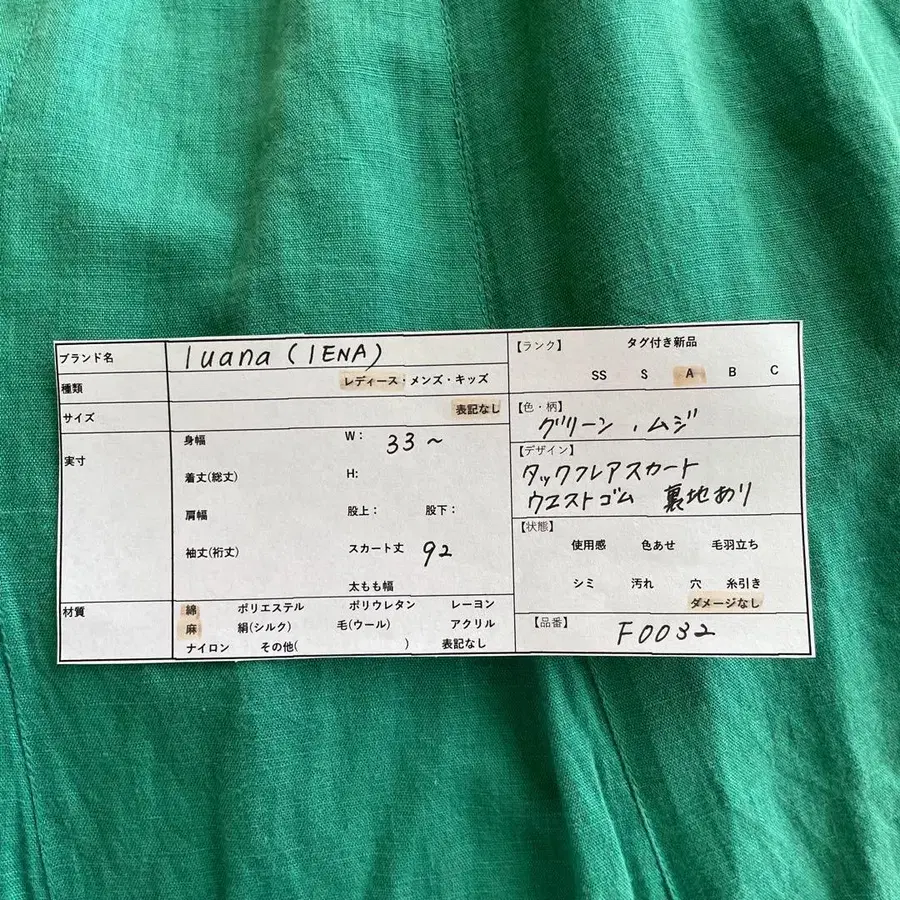 ブランド名 luana (IENA)
種類 レディース・メンズ・キッズ
サイズ 表記なし
実寸
身幅 W: 33~
着丈(総丈) H:
肩幅 股上: 股下:
袖丈(裄丈) スカート丈 92
太もも幅
材質 綿 ポリエステル ポリウレタン レーヨン
麻 絹(シルク) 毛(ウール) アクリル
ナイロン その他( ) 表記なし
【ランク】 タグ付き新品
SS S A B C
【色・柄】
グリーン、ムジ
【デザイン】
タックフレアスカート
ウエストゴム 裏地あり
【状態】
使用感 色あせ 毛羽立ち
シミ 汚れ 穴 糸引き
ダメージなし
【品番】 F0032